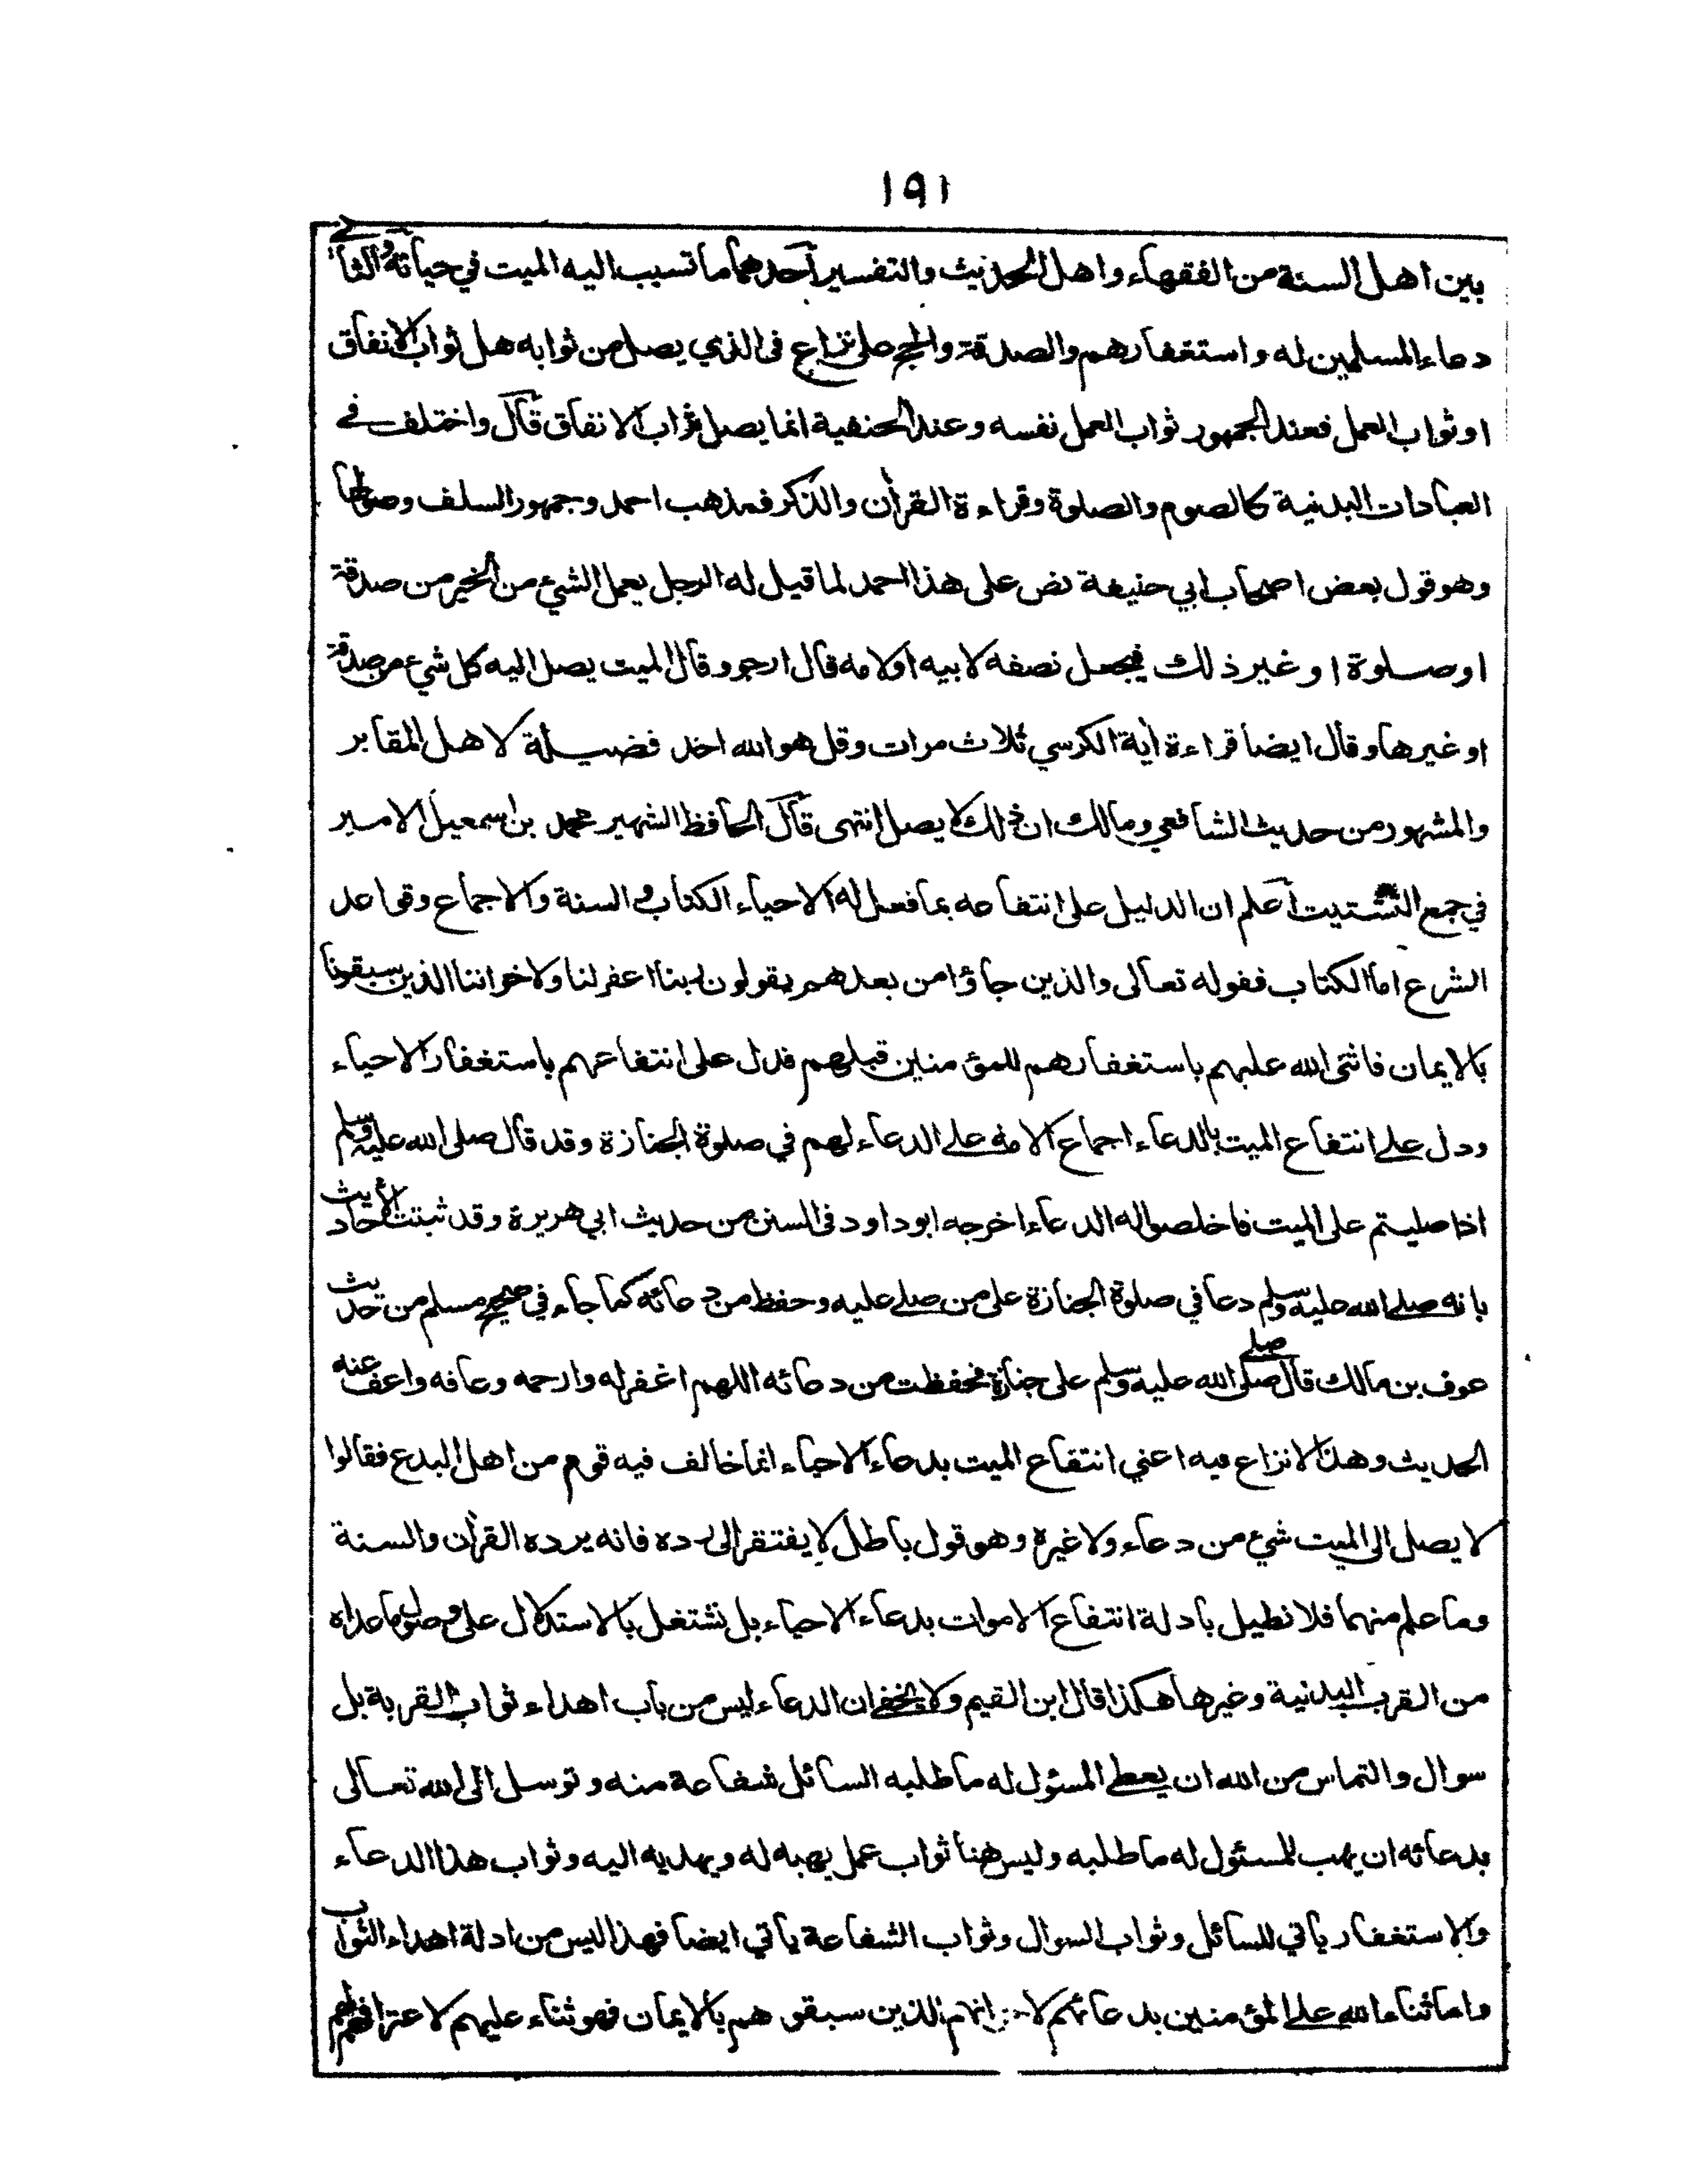 ١٩١
بين اهل السنة من الفقهاء واهل الحديث والتفسير احدهما ما تسبب اليه الميت في حياته والثاني
دعاء المسلمين له واستغفارهم والصدقة والحج على نزاع فى الذي يصل من ثوابه هل ثواب الانفاق
او ثواب العمل فعند الجمهور ثواب العمل نفسه وعند الحنفية انما يصل ثواب الانفاق قال واختلف في
العبادات البدنية كالصوم والصلوة وقراءة القرآن والذكر فمذهب احمد وجمهور السلف وصولها
وهو قول بعض اصحاب ابي حنيفة نص على هذا احمد لما قيل له الرجل يعمل الشئ من الخير من صدقة
او صلوة او غير ذلك فيجعل نصفه لابيه او لامه قال ارجو وقال الميت يصل اليه كل شئ من صدقة
او غيرها وقال ايضا قراءة آية الكرسي ثلاث مرات وقل هو الله احد فضيلة لاهل المقابر
والمشهور من حديث الشافعي ومالك ان ذلك لا يصل انتهى قال الحافظ الشهير محمد بن اسمعيل الامير
في جمع التشتيت اعلم ان الدليل على انتفاعه بما فعل له الاحياء الكتاب والسنة والاجماع وقواعد
الشرع اما الكتاب فقوله تعالى والذين جاؤا من بعدهم يقولون ربنا اغفر لنا ولاخواننا الذين سبقونا
بالايمان فاثنى الله عليهم باستغفارهم للمؤمنين قبلهم فدل على انتفاعهم باستغفار الاحياء
ودل على انتفاع الميت بالدعاء اجماع الامة على الدعاء لهم في صلوة الجنازة وقد قال صلى الله عليه وسلم
اذا صليتم على الميت فاخلصوا له الدعاء اخرجه ابو داود فى السنن من حديث ابي هريرة وقد ثبتت الأحاديث
بانه صلى الله عليه وسلم دعا في صلوة الجنازة على من صلى عليه وحفظ من دعائه كما جاء في صحيح مسلم من حديث
عوف بن مالك قال صلى صلى الله عليه وسلم على جنازة فحفظت من دعائه اللهم اغفر له وارحمه وعافه واعف عنه
الحديث وهذا لا نزاع فيه اعني انتفاع الميت بدعاء الاحياء انما خالف فيه قوم من اهل البدع فقالوا
لا يصل الى الميت شئ من دعاء ولا غيره وهو قول باطل لا يفتقر الى رده فانه يرده القرآن والسنة
وما علم منهما فلا نطيل بادلة انتفاع الاموات بدعاء الاحياء بل نشتغل بالاستدلال على وصول ما عداه
من القرب البدنية وغيرها هكذا قال ابن القيم ولا يخفى ان الدعاء ليس من باب اهداء ثواب القربة بل
سوال والتماس من الله ان يعطى المسئول له ما طلبه السائل شفاعة منه وتوسل الى الله تعالى
بدعائه ان يهب للمسئول له ما طلبه وليس هنا ثواب عمل يهبه له ويهديه اليه وثواب هذا الدعاء
والاستغفار ياتي للسائل وثواب السوال وثواب الشفاعة ياتي ايضا فهذا ليس من ادلة اهداء الثواب
واما ثناء الله على المؤمنين بدعائهم الذين سبقوهم بالايمان فهو ثناء عليهم لاعترافهم